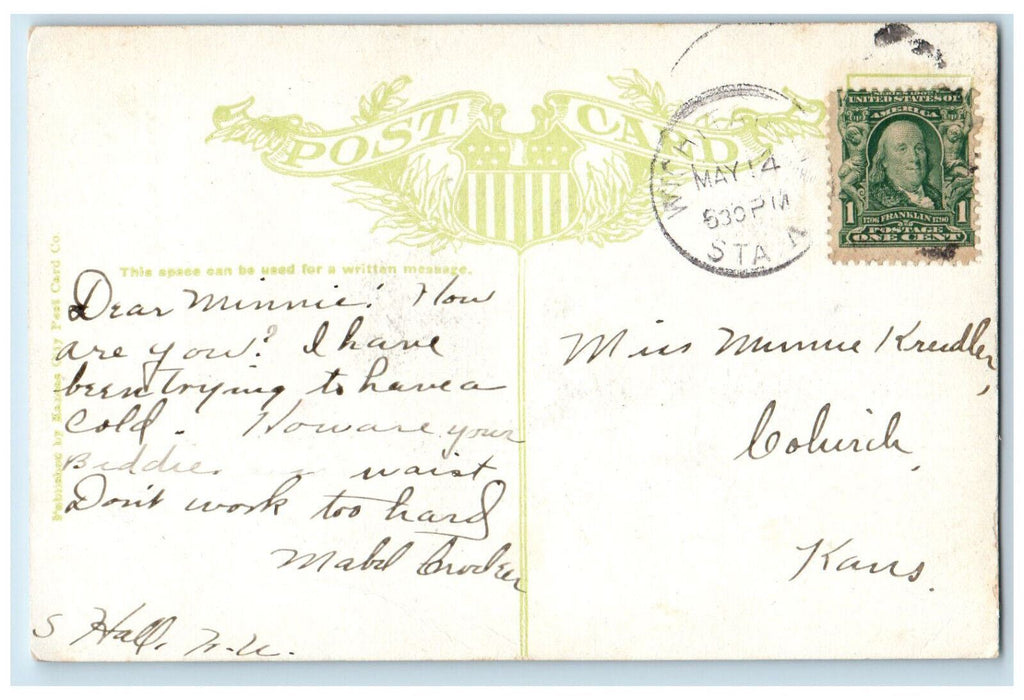 POST CARD
WICHITA
MAY 14
530 PM
STA
UNITED STATES OF
AMERICA
1 1706 FRANKLIN 1790 1
POSTAGE
ONE CENT
This space can be used for a written message.
Published by Kansas City Post Card Co.
Dear Minnie! How
are you? I have
been trying to have a
cold. How are your
Biddies waist
Don't work too hard
Mabel Crocker
S Hall,
Miss Minnie Kreidler,
Colwich,
Kans.